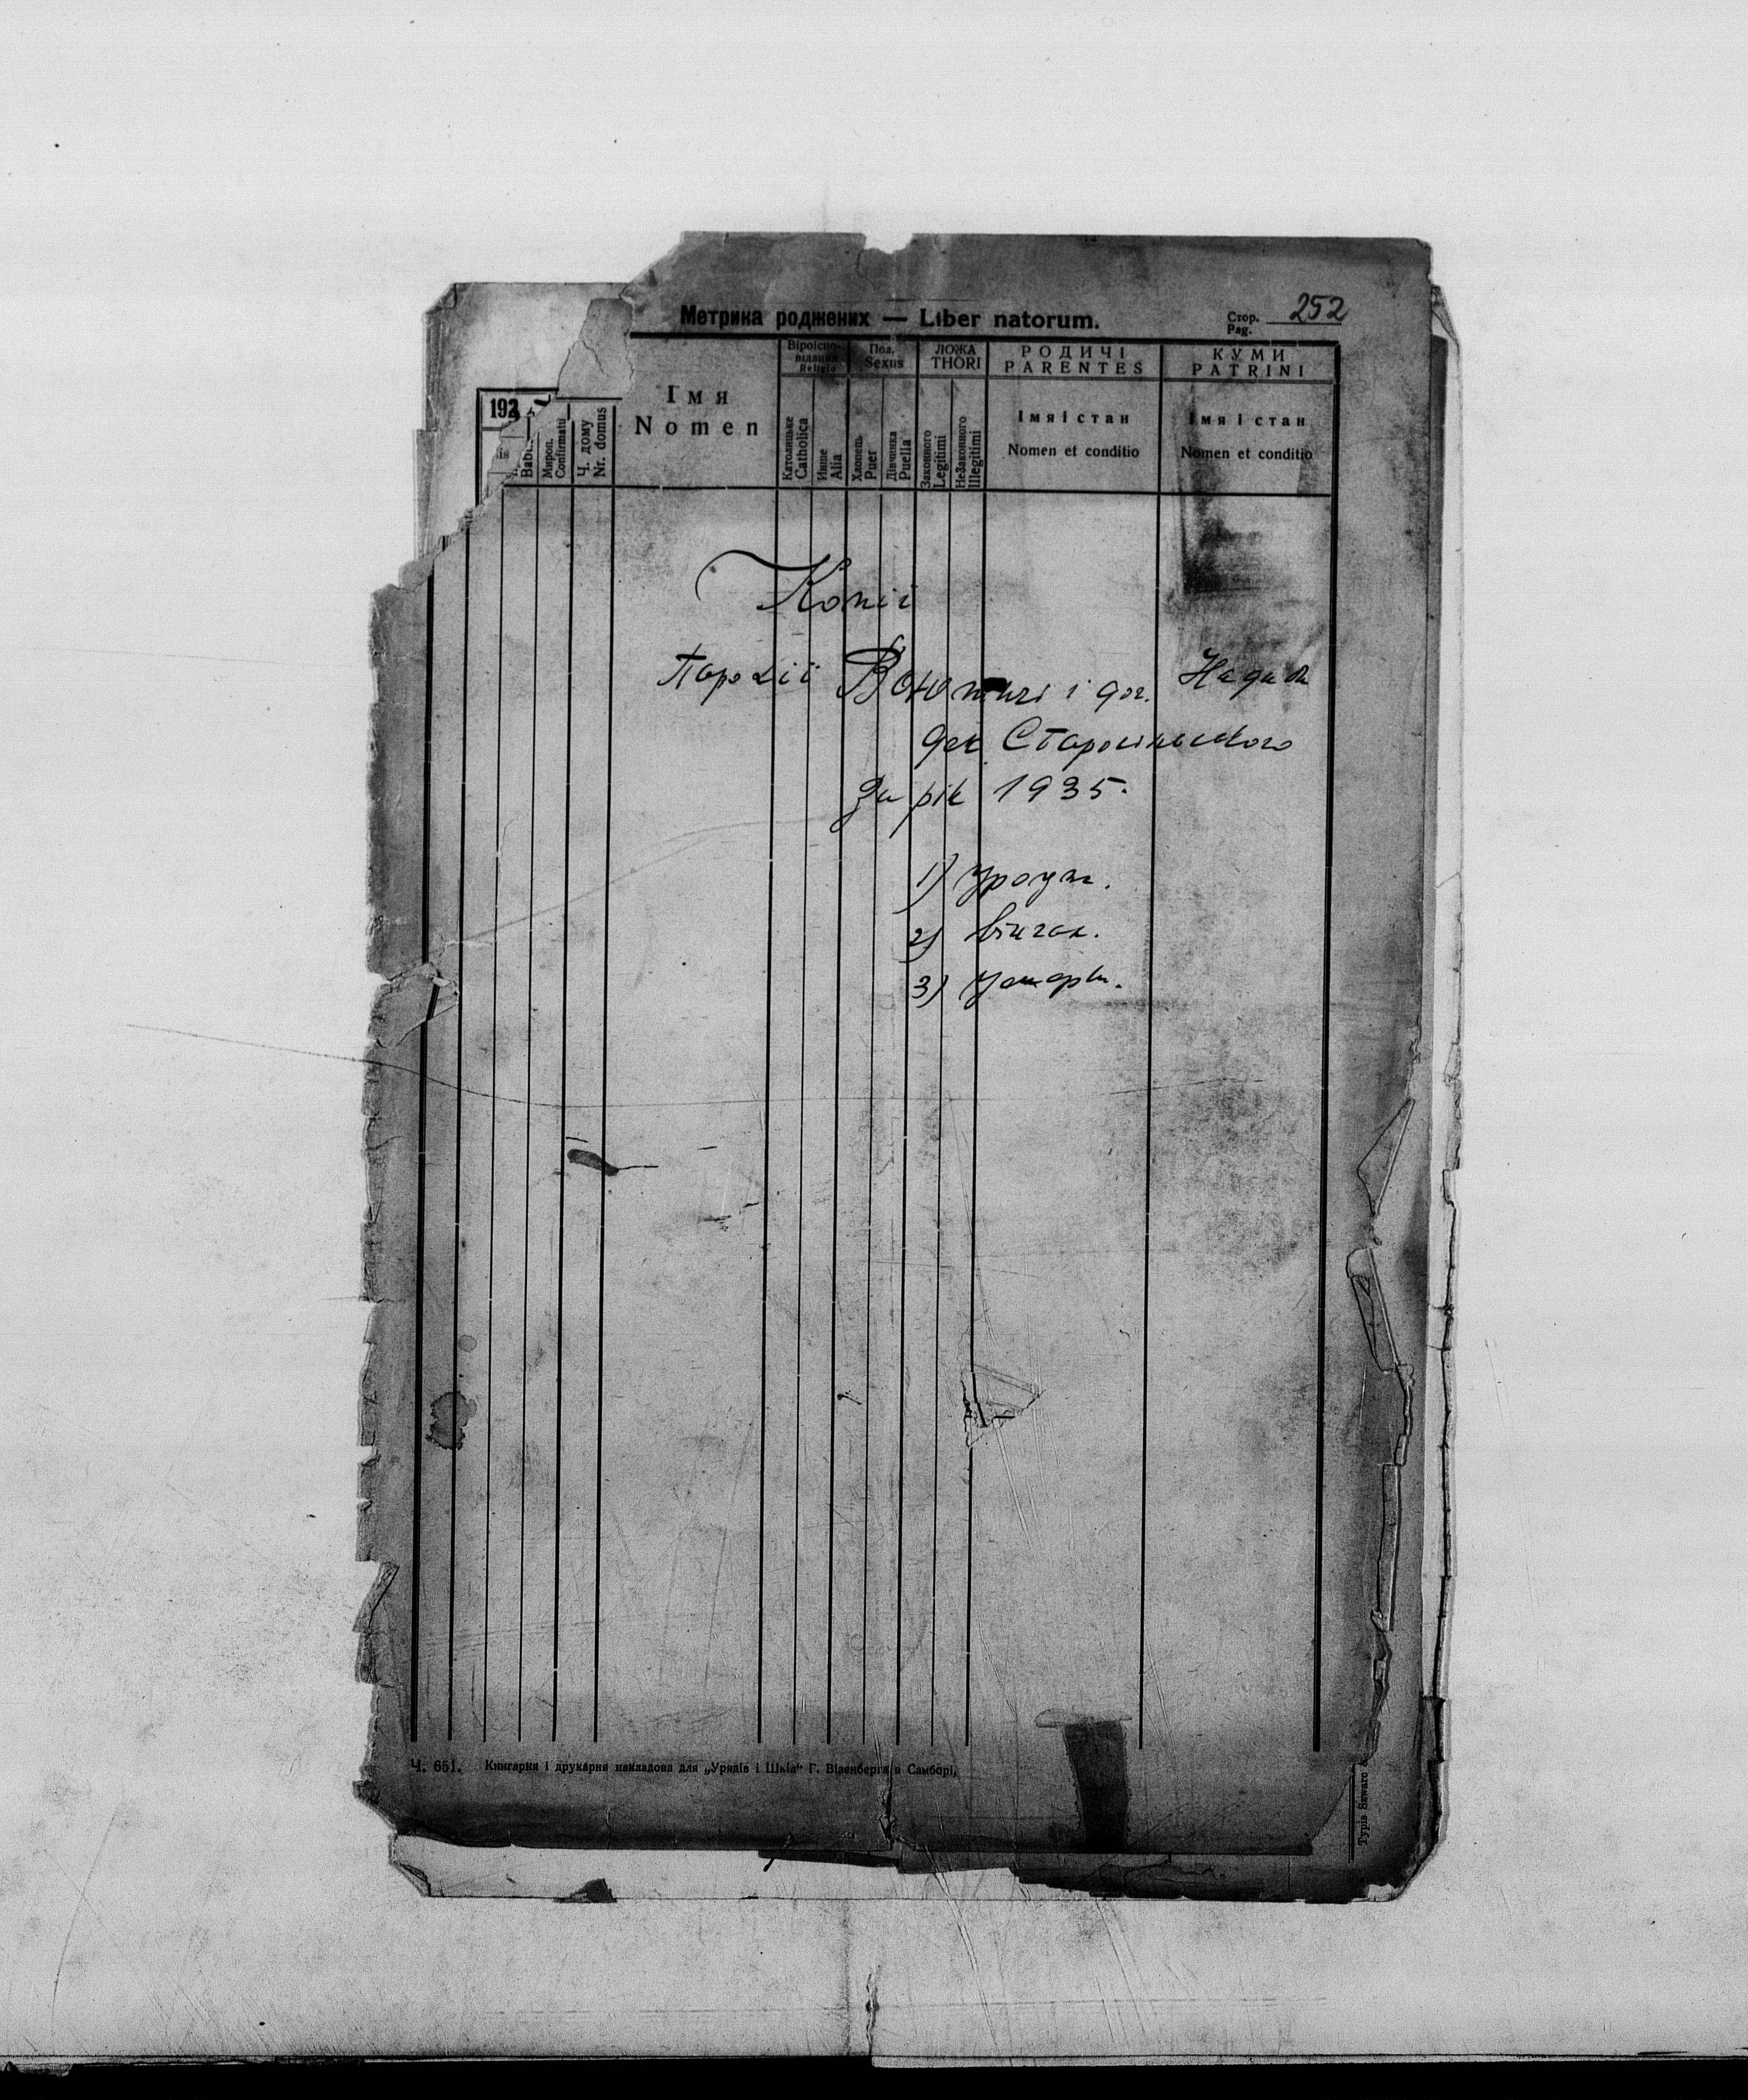 Метрика роджених — Liber natorum.
Стор. Pag. 252
192
Віроіспо-
відання
Religio
Пол.
Sexus
ЛОЖА
THORI
РОДИЧІ
PARENTES
КУМИ
PATRINI
Мироп.
Confirmati
Ч. дому
Nr. domus
Імя
Nomen
Католицьке
Catholica
Инше
Alia
Хлопець
Puer
Дівчинка
Puella
Законного
Legitimi
Незаконного
Illegitimi
Імя і стан
Nomen et conditio
Імя і стан
Nomen et conditio
Копії
Парохії Вютичі і доч. Надиби
дек. Старосільского
за рік 1935.
1) урод
2) вінчан.
3) умерш.
Ч. 651. Книгарня і друкарня накладова для „Урядів і Шкіл“ Г. Візенберга в Самборі,
Typis Szwarc